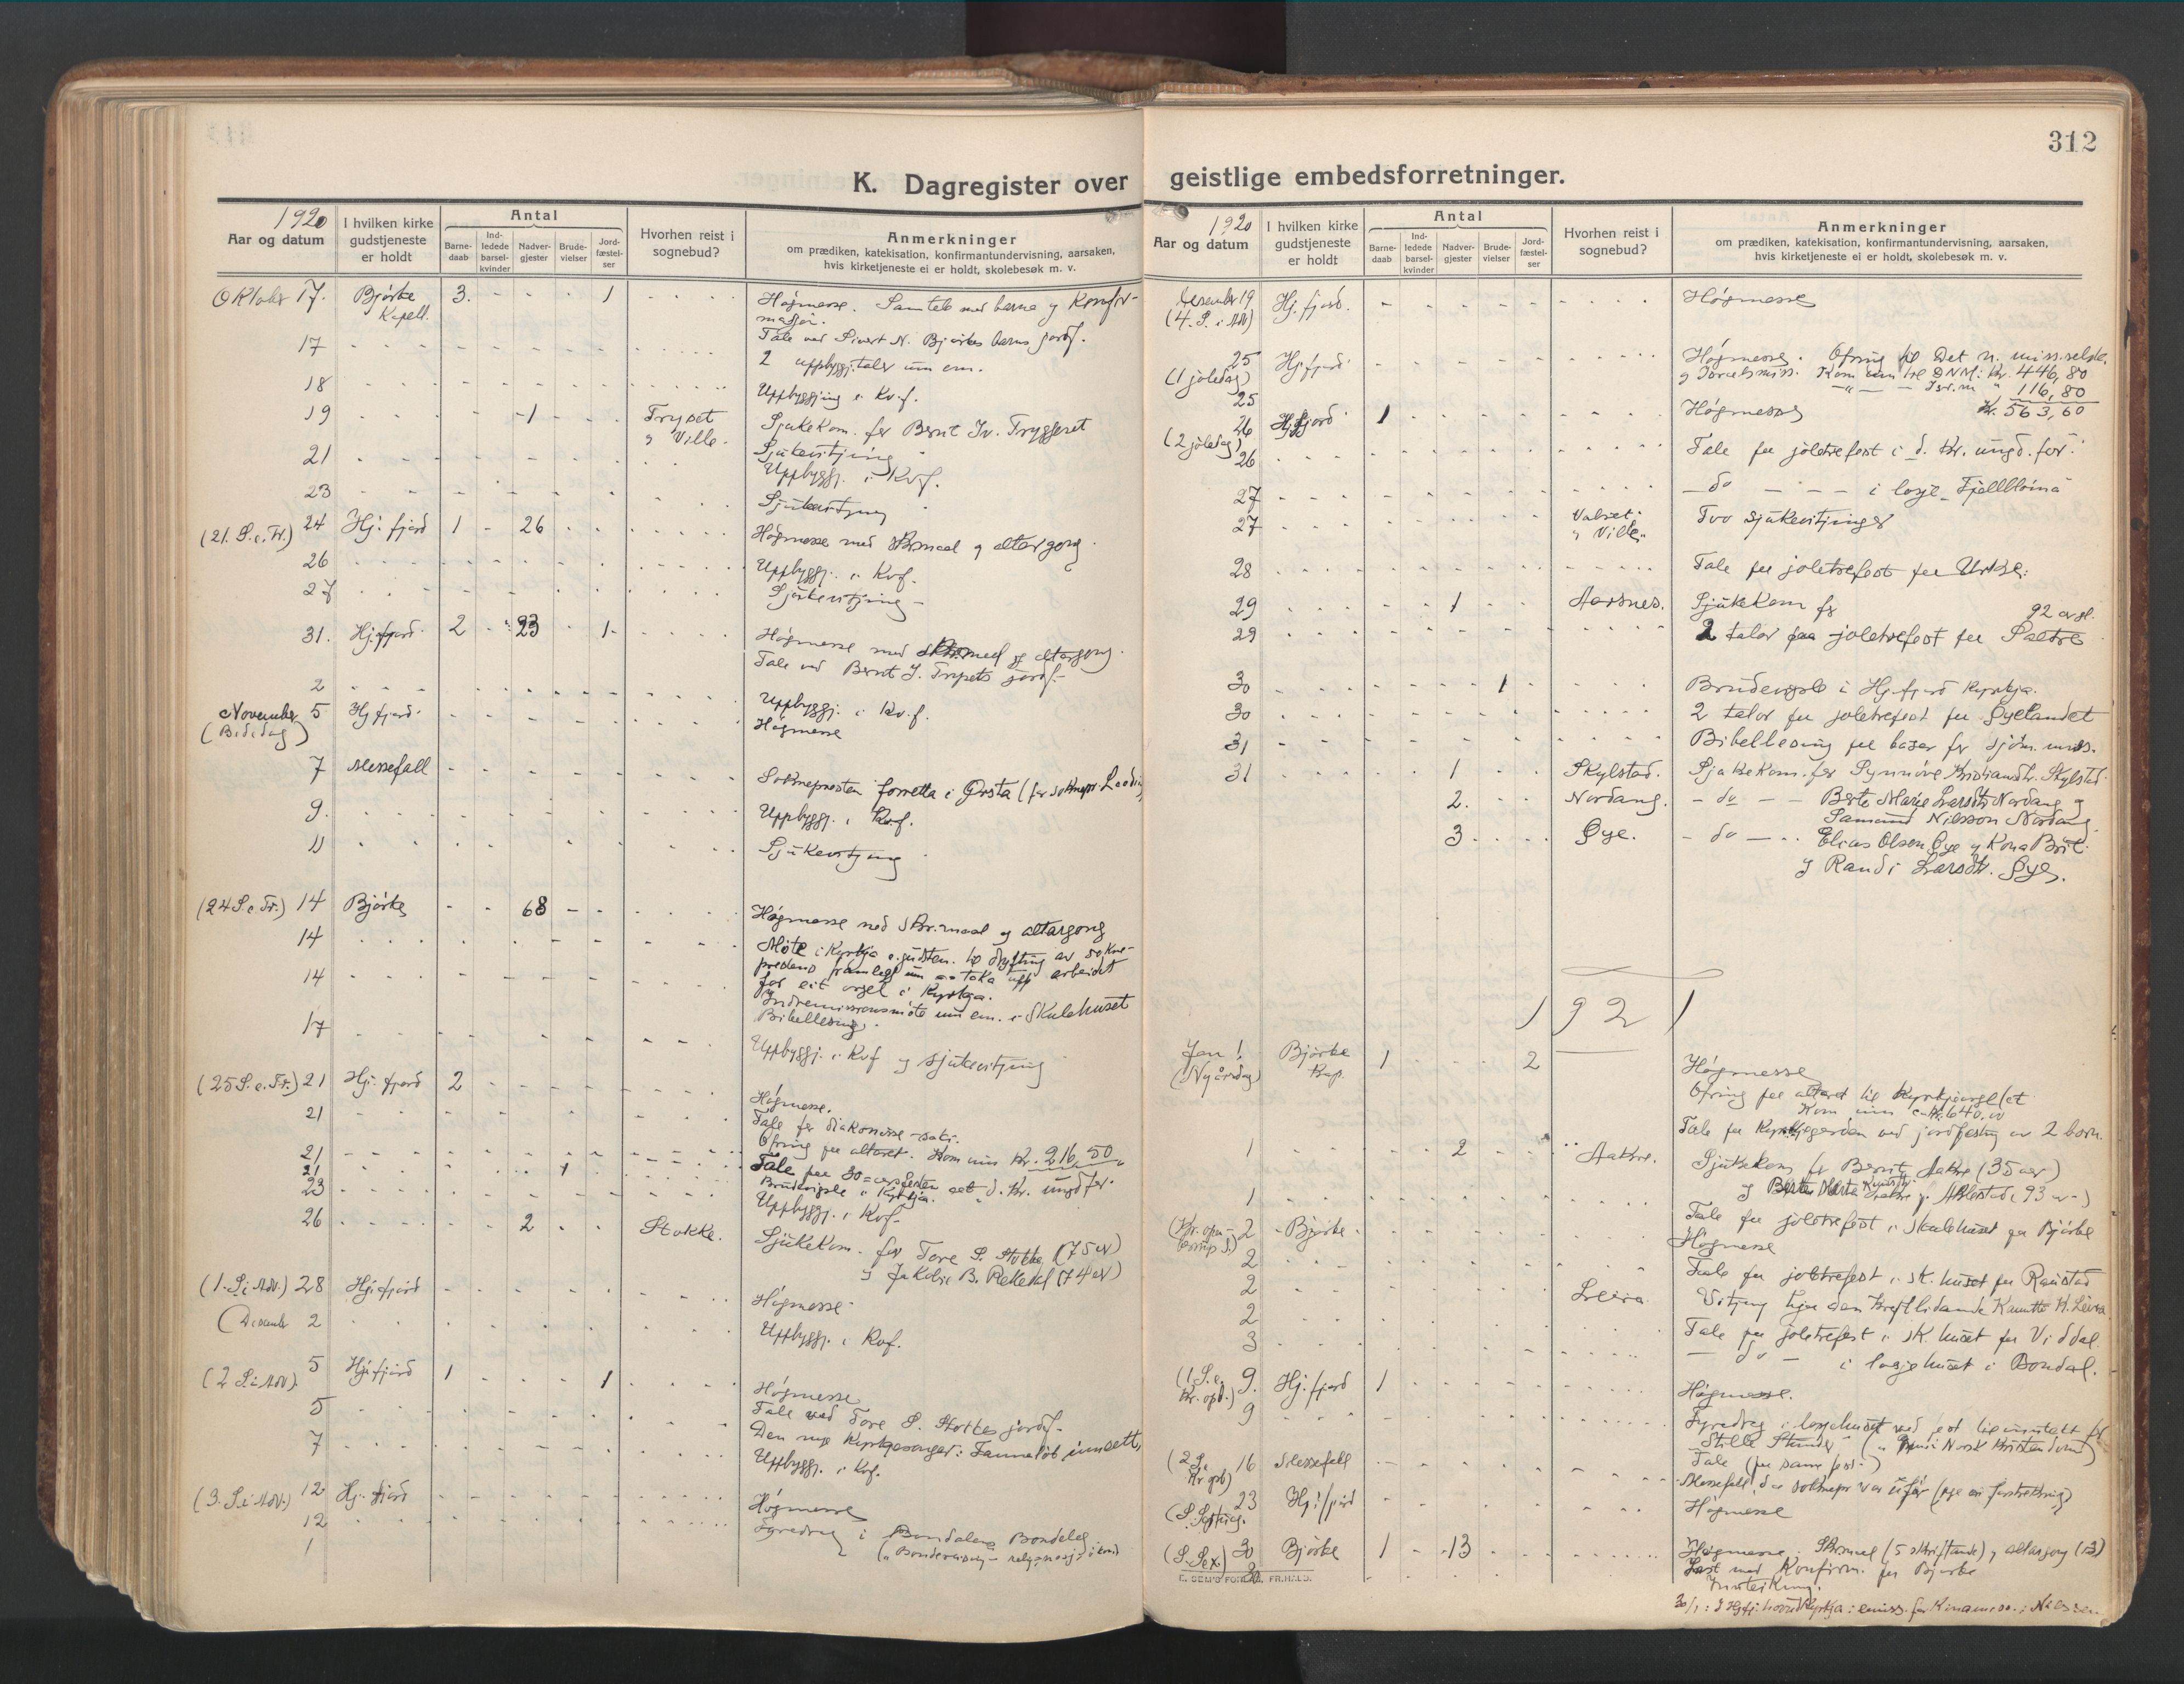 312
K. Dagregister over geistlige embedsforretninger.
1920
Aar og datum
I hvilken kirke gudstjeneste er holdt
Antal
Barne-daab
Ind-ledede barsel-kvinder
Nadver-gjester
Brude-vielser
Jord-fæstel-ser
Hvorhen reist i sognebud?
Anmerkninger
om prædiken, katekisation, konfirmantundervisning, aarsaken,
hvis kirketjeneste ei er holdt, skolebesøk m. v.
Oktober 17. Bjórke Kapell. 3. 1 Högmesse. Samtale med borna og Konfir-
17 Tale ved Sivert N. Bjórkes barns jordf.
2 uppbyggj. talar um em.
18 Uppbyggjing i Kv.f.
19 1 Tryset og Ville. Sjukekom. for Bernt Iv. Tryggeset
Sjukevitjing
21 Uppbyggj. i Kv.f.
23 Sjukevitjing
(21. S. e. Tr.) 24 Hj. fjord 1 26 Högmesse med skrmaal og altargong.
26 Uppbyggj. i Kvf.
27 Sjukevitjing
31. Hj. fjord 2 23 1 Högmesse med skrmaal og altargong.
Tale ved Bernt J. Trysets jordf.
2 Uppbyggj. i Kv.f.
November 5 Hj fjord. Högmesse
(Bededag)
7 Messefall Soknepresten forretta i Ørsta (for soknepr.
9. Uppbyggj. i Kv.f.
11 Sjukevitjing
(24 S. e Tr.) 14 Bjórke 68 Högmesse med skr.maal og altargong
14 Móte i Kyrkja e. gudsten. til drøfting av sokne-
prestens framlegg um aa taka upp arbeidet
for eit orgel i Kyrkja.
14 Indremissionsmóte um em. i Skulehuset
Bibellesing.
17 Uppbyggj. i Kvf og sjukevitjing
(25 S. e. Tr.) 21 Hj. fjord 2 Högmesse.
21 Tale for diakonisse-saki.
Ofring paa altaret. Kom inn Kr. 216,50
21 Tale paa 30-aarsfesten aat d. Kr. ungdfor.
21 1 Brudevigsle i Kyrkja.
23 Uppbyggj. i Kvf.
26 2 Stokke. Sjukekom. for Tore S. Stokke (75 aar)
og Jakobie B. Rekedal (74 aar)
(1. S. i Adv.) 28 Hj. fjord Högmesse
(December 2 Uppbyggj. i Kvf.
(2 S. i Adv). 5 Hj. fjord 1 1 Högmesse
Tale ved Tore S. Stokkes jordf.
5 Den nye Kyrkjesongar: innsett.
7 Uppbyggj. i Kvf.
(3. S. i Adv.) 12 Hj. fjord Högmesse
12 Fyredrag i Bondalens Bondelag
1920
Aar og datum
I hvilken kirke gudstjeneste er holdt
Antal
Barne-daab
Ind-ledede barsel-kvinder
Nadver-gjester
Brude-vielser
Jord-fæstel-ser
Hvorhen reist i sognebud?
Anmerkninger
om prædiken, katekisation, konfirmantundervisning, aarsaken,
hvis kirketjeneste ei er holdt, skolebesøk m. v.
Desember 19 Hj. fjord. Högmesse
(4. S. i Adv)
25 Hj. fjord Högmesse. Ofring til Det n. miss.selsk.
(1 joledag) og Israelsmiss. Kom inn til DNM: Kr. 446,80
25 Isr.m " 116,80
Kr. 563,60
26 Hj. fjord 1 Högmesse
(2 joledag)
26 Tale paa joletrefest i d. Kr. ungd. for.
27 do i losje Fjellbloma
27 Valset og Ville. Tvo sjukevitjingar
28 Tale paa joletrefest paa Urke.
29 1 Aarsnes. Sjukekom for 92 aar gl.
29 2 talar paa joletrefest paa Sætre
30 1 Brudevigsle i Hj. fjord kyrkja.
30 2 talar paa joletrefest paa Øyelandet
31 Bibellesing paa basar for sjóm. miss.
31 1 Skylstad. Sjukekom. for Synnóve Kristiansdtr. Skylstad.
2. Nordang. do Berte Marie Larsdtr Nordang og
Samund Nilsson Nordang.
3 Øye. do Elias Olson Øye og Kona Brit.
og Randi Larsdtr. Øye.
1921
Jan 1 Bjórke Kap. 1 2 Högmesse
(Nyårsdag) Ofring paa altaret til Kyrkjeorgelet
Kom inn
Tale paa Kyrkjegarden ved jordfesting av 2 born.
1 2 Aakre. Sjukekom for Bernt Aakre (35 aar)
(93 aar)
1 Tale paa joletrefest i skulehuset paa Bjórke
2 Bjórke Högmesse
2 Tale paa joletrefest i sk. huset paa Raustad
2 Leira. Vitjing hjaa den kreftlidande H. Leira
2 Tale paa joletrefest i sk. huset paa Viddal.
3 do i losjehuset i Bondal.
(1. S. e. Kr. opb.) 9. Hj. fjord 1 Högmesse.
9 Fyredrag i losjehuset ved fest til inntekt for
"Stille Stunder"
Tale (paa same fest)
16 Messefall Messefall, da soknepr var ufór
23 Hj. fjord Högmesse
(S. Sex) 30 Bjórke 1 13 Högmesse. Skrmaal (5 skriftande) og altargong (13)
30 med Konfirm. paa Bjorke
Innskriving.